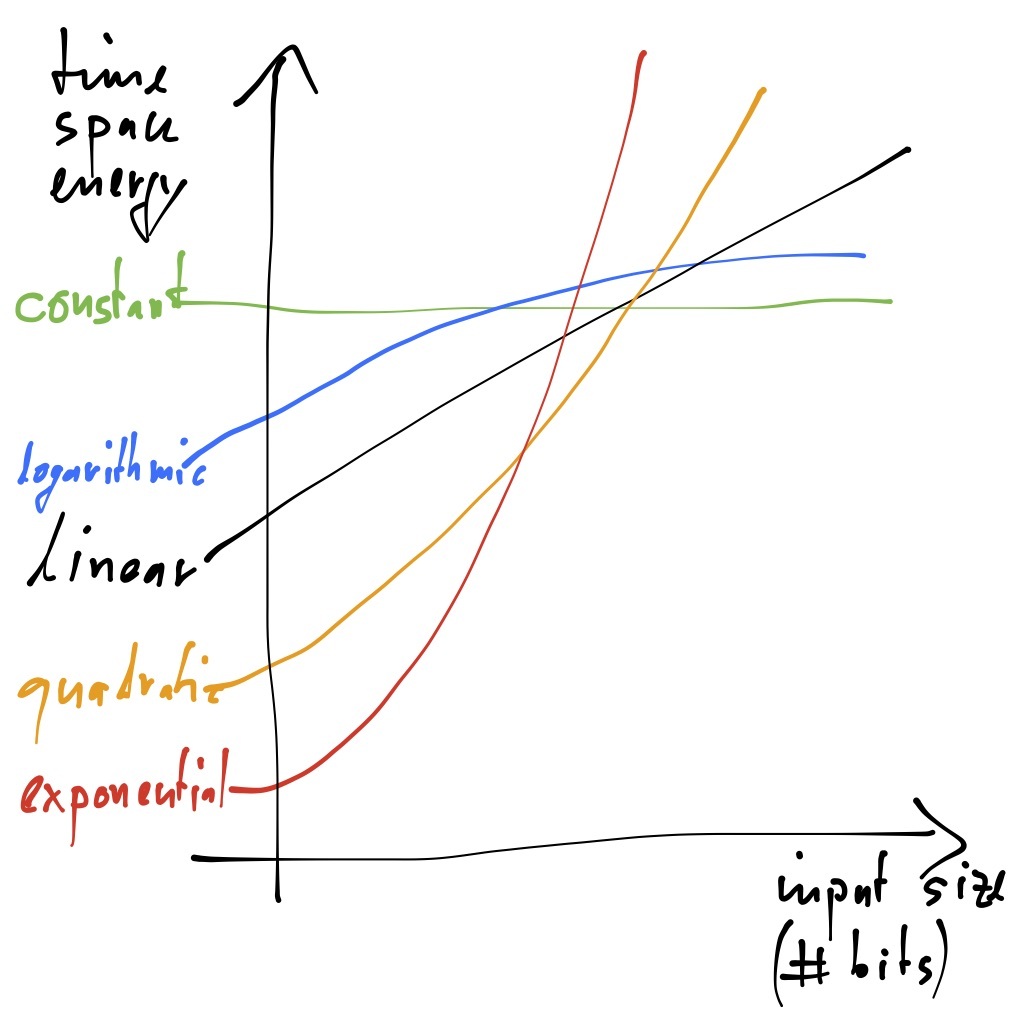 time
space
energy
constant
logarithmic
linear
quadratic
exponential
input size
(# bits)